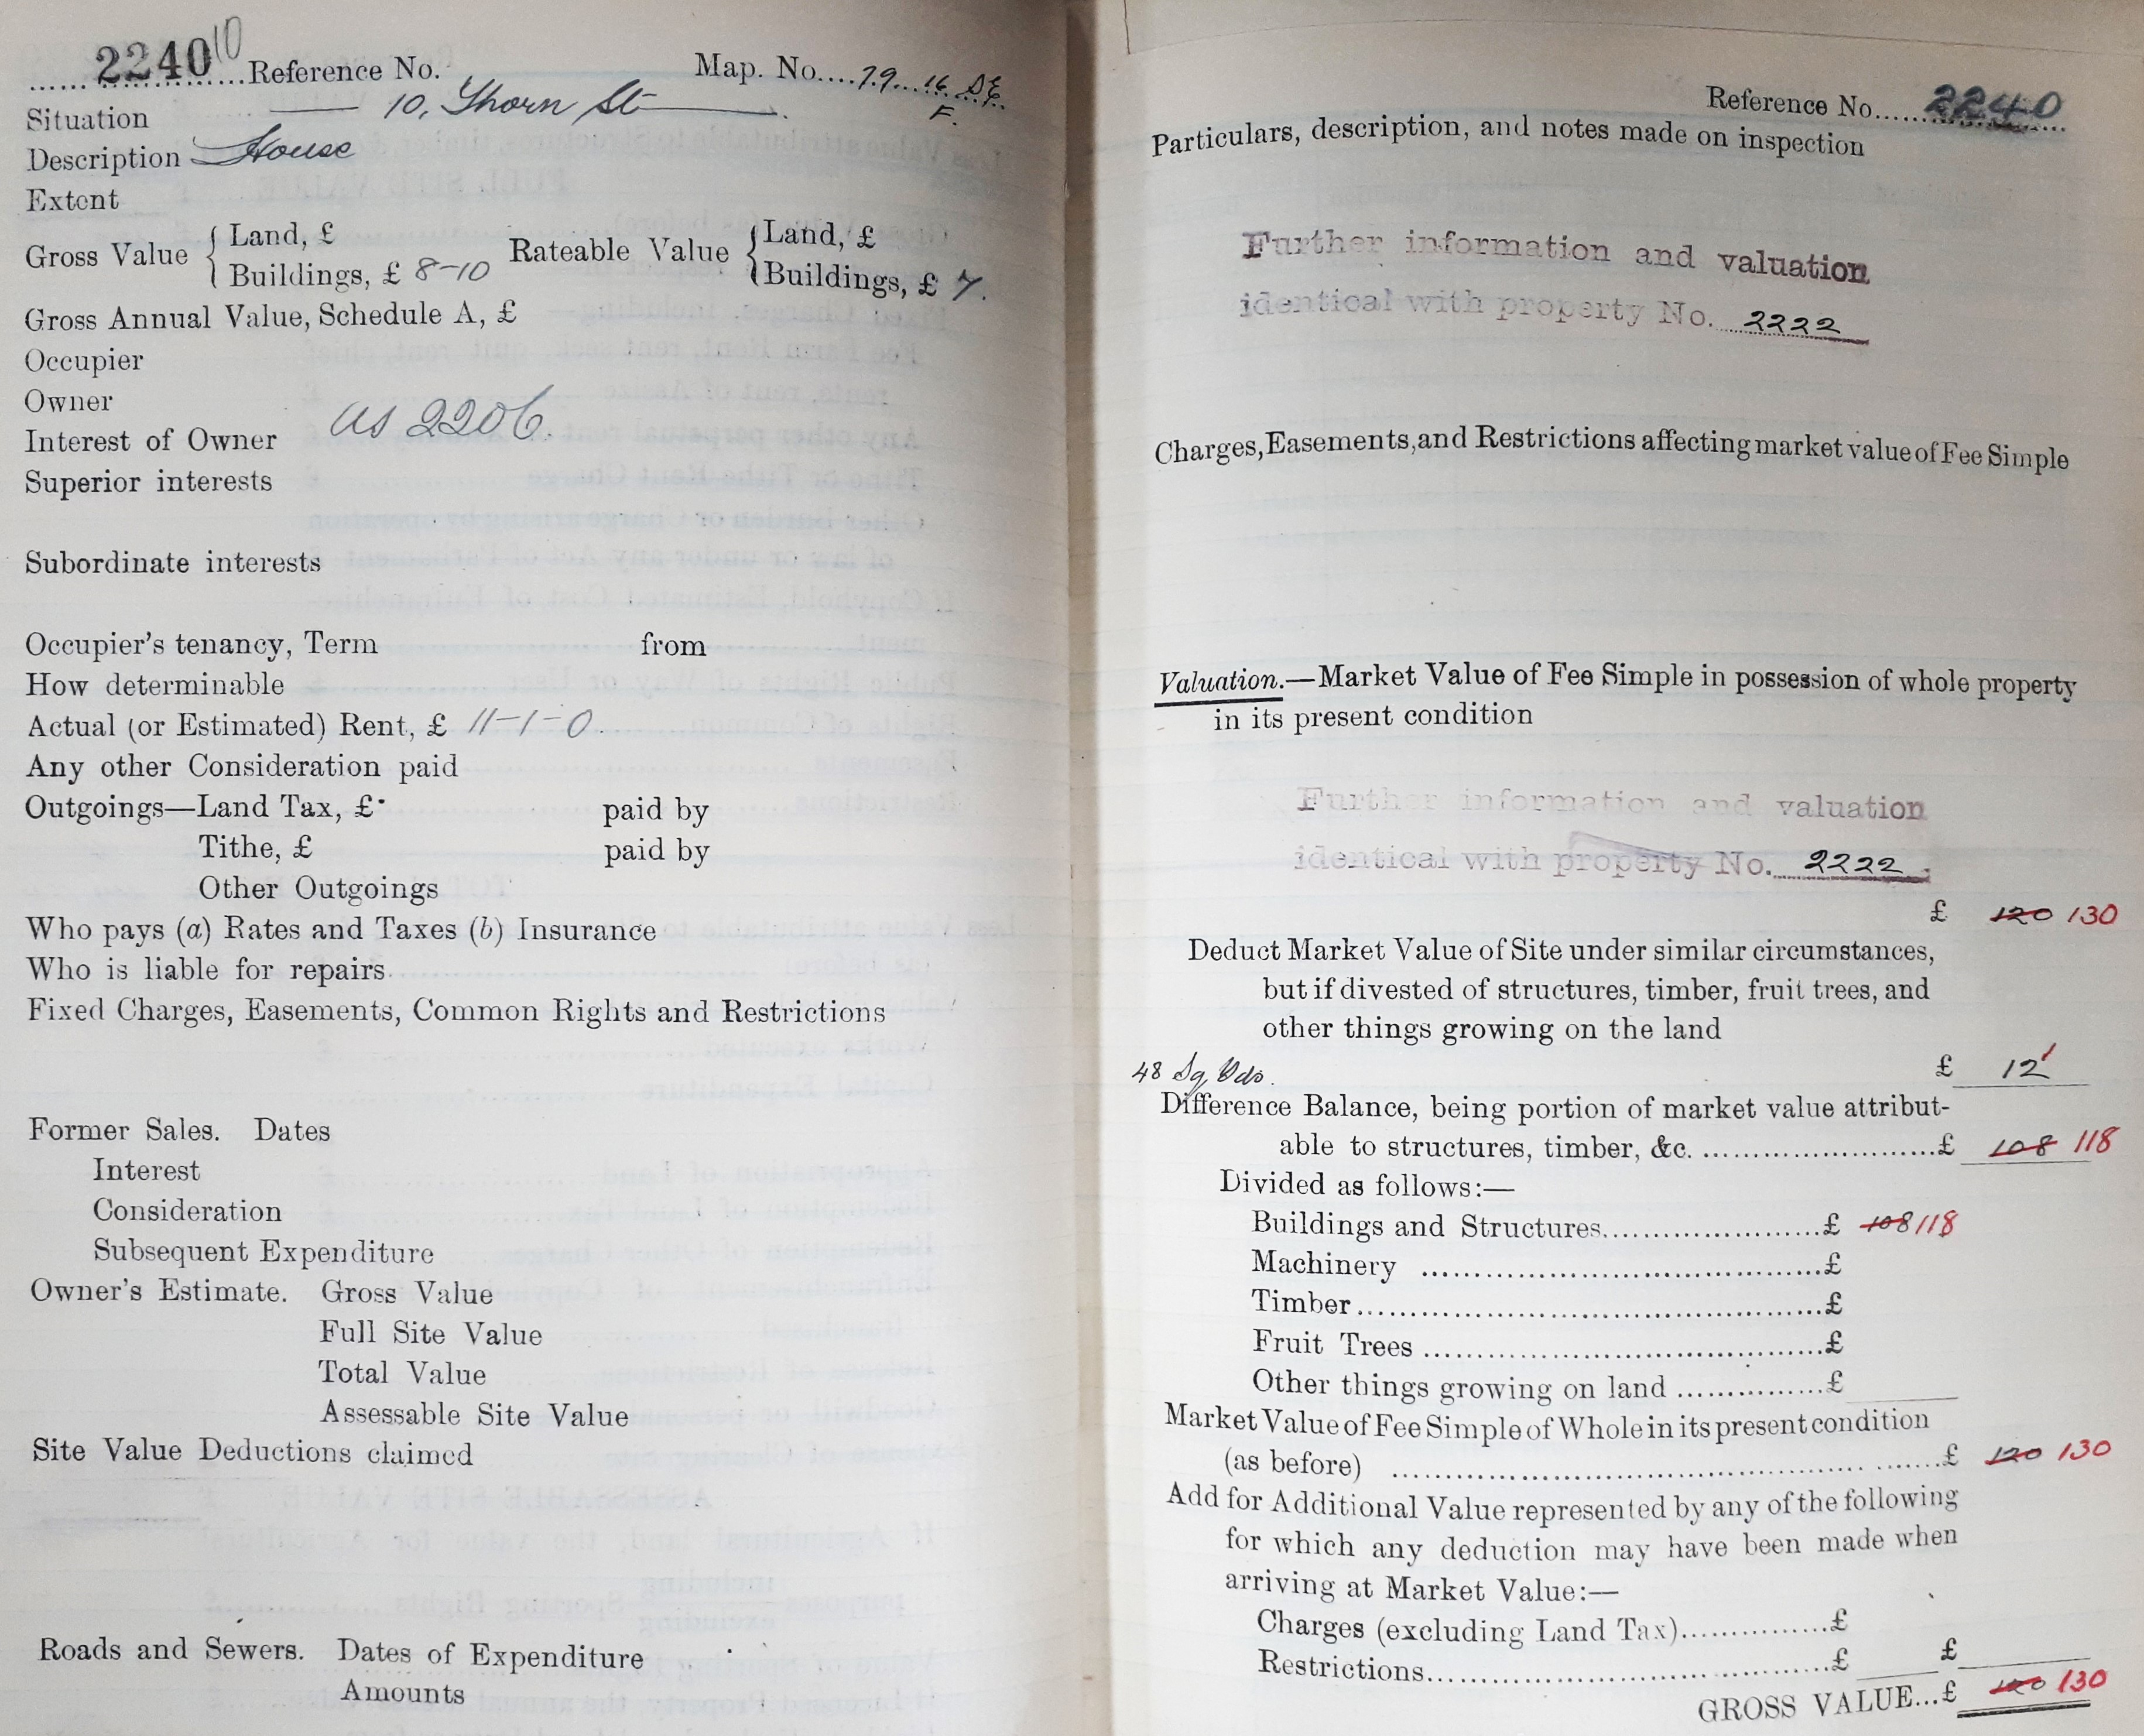 2240 10 Reference No. Map. No....79..16 SE
F.
Situation 10, Thorn St
Description House
Extent
Gross Value { Land, £ Rateable Value { Land, £
Buildings, £ 8-10 Buildings, £ 7.
Gross Annual Value, Schedule A, £
Occupier
Owner
as 2206.
Interest of Owner
Superior interests
Subordinate interests
Occupier's tenancy, Term from
How determinable
Actual (or Estimated) Rent, £ 11-1-0.
Any other Consideration paid
Outgoings—Land Tax, £ paid by
Tithe, £ paid by
Other Outgoings
Who pays (a) Rates and Taxes (b) Insurance
Who is liable for repairs
Fixed Charges, Easements, Common Rights and Restrictions
Former Sales. Dates
Interest
Consideration
Subsequent Expenditure
Owner's Estimate. Gross Value
Full Site Value
Total Value
Assessable Site Value
Site Value Deductions claimed
Roads and Sewers. Dates of Expenditure
Amounts
Reference No. 2240
Particulars, description, and notes made on inspection
Further information and valuation
identical with property No. 2222
Charges, Easements, and Restrictions affecting market value of Fee Simple
Valuation.—Market Value of Fee Simple in possession of whole property
in its present condition
Further information and valuation
identical with property No. 2222
£ 120 130
Deduct Market Value of Site under similar circumstances,
but if divested of structures, timber, fruit trees, and
other things growing on the land
48 Sq Yds. £ 12
Difference Balance, being portion of market value attribut-
able to structures, timber, &c. ........................£ 108 118
Divided as follows:—
Buildings and Structures......................£ 108 118
Machinery ........................................£
Timber..............................................£
Fruit Trees ........................................£
Other things growing on land ...............£
Market Value of Fee Simple of Whole in its present condition
(as before) ......................................................£ 120 130
Add for Additional Value represented by any of the following
for which any deduction may have been made when
arriving at Market Value:—
Charges (excluding Land Tax)...............£
Restrictions..........................................£ £
GROSS VALUE...£ 120 130